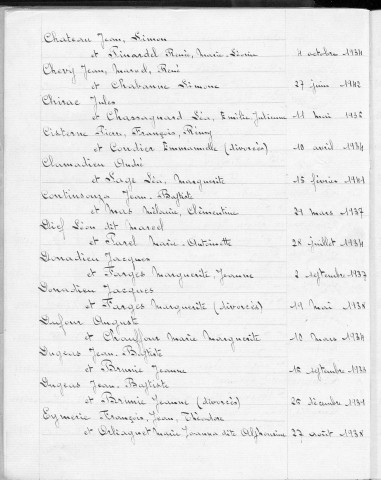 Chateau Jean, Simon
et Pinardel Renée, Marie-Léonie 4 octobre - 1934
Chevy Jean, Marcel, René
et Chabanne Simone 27 juin - 1942
Chirac Jules
et Chassagnard Léa, Emilie Julienne - 11 mai - 1935
Cisterne Pierre, François, Rémy
et Coudier Emmanuelle (divorcés) - 10 avril - 1934
Clamadieu André
et Sage Léa, Marguerite - 15 février - 1941
Continsouza Jean-Baptiste
et Mas Hélène, Clémentine 21 mars - 1937
Dief Léon dit Marcel
et Parel Marie-Antoinette 28 juillet - 1934
Donadieu Jacques
et Farges Marguerite-Jeanne 2 septembre - 1937
Donadieu Jacques
et Farges Marguerite (divorcés) - 19 mai - 1938
Dufour Auguste
et Chauffour Marie Marguerite - 10 mars - 1934
Dugeas Jean-Baptiste
et Brunie Jeanne - 16 septembre -
Dugeas Jean-Baptiste
et Brunie Jeanne (divorcés) 26 décembre - 1941
Eymerie François, Jean-Théodore
et Orliaguet Marie Jeanna dite Alphonsine 27 août - 1938